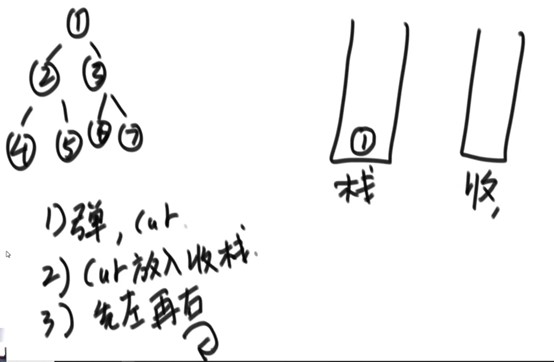 ①
② ③
④ ⑤ ⑥ ⑦
①
栈 收
1) 弹, cur
2) cur 放入收栈.
3) 先左再右